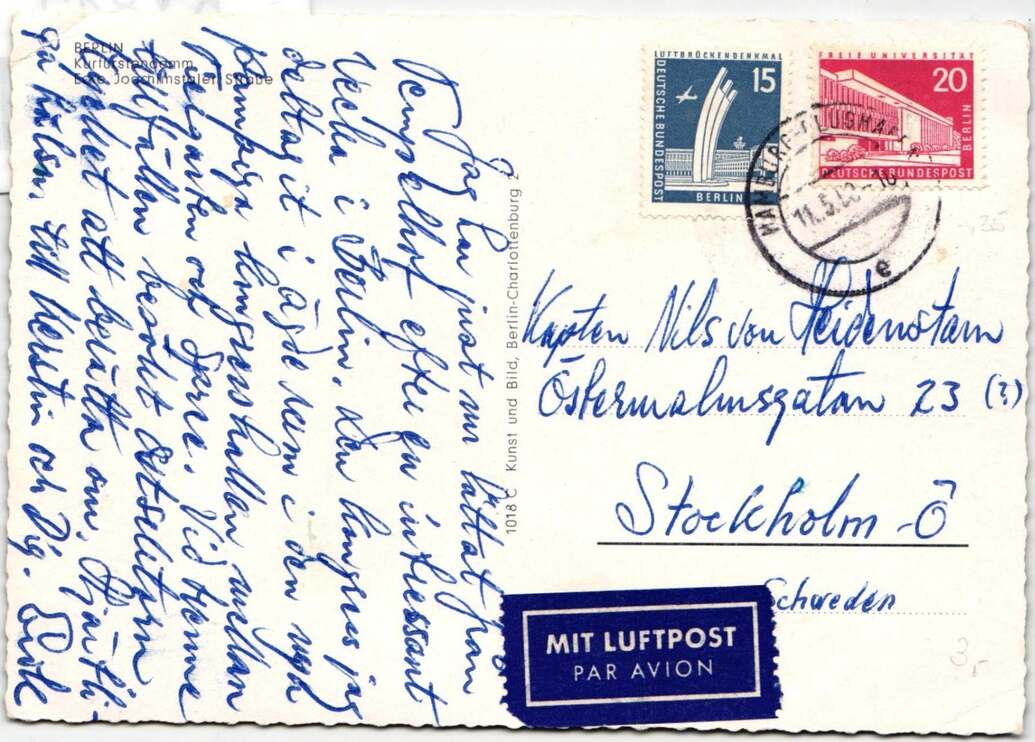 BERLIN
Kurfürstendamm
Ecke Joachimstaler Straße
Jag har just nu lättat från
Tempelhof efter en intressant
vecka i Berlin. Den kongress jag
deltagit i ägde rum i den nya
kongresshallen mellan
Tiergarten och Spree. Vid
tillfällen besökt östsektorn
Mycket att berätta om. Hjärtli-
ga hälsn. till Kerstin och Dig.
1018 C Kunst und Bild, Berlin-Charlottenburg 2
LUFTBRÜCKENDENKMAL
15
DEUTSCHE BUNDESPOST
BERLIN
FREIE UNIVERSITÄT
20
BERLIN
DEUTSCHE BUNDESPOST
HAMBURG-FLUGHAFEN
11.5.
e
-,35
Kapten Nils von Heidenstam
Östermalmsgatan 23 (?)
Stockholm-Ö
Schweden
MIT LUFTPOST
PAR AVION
3,-